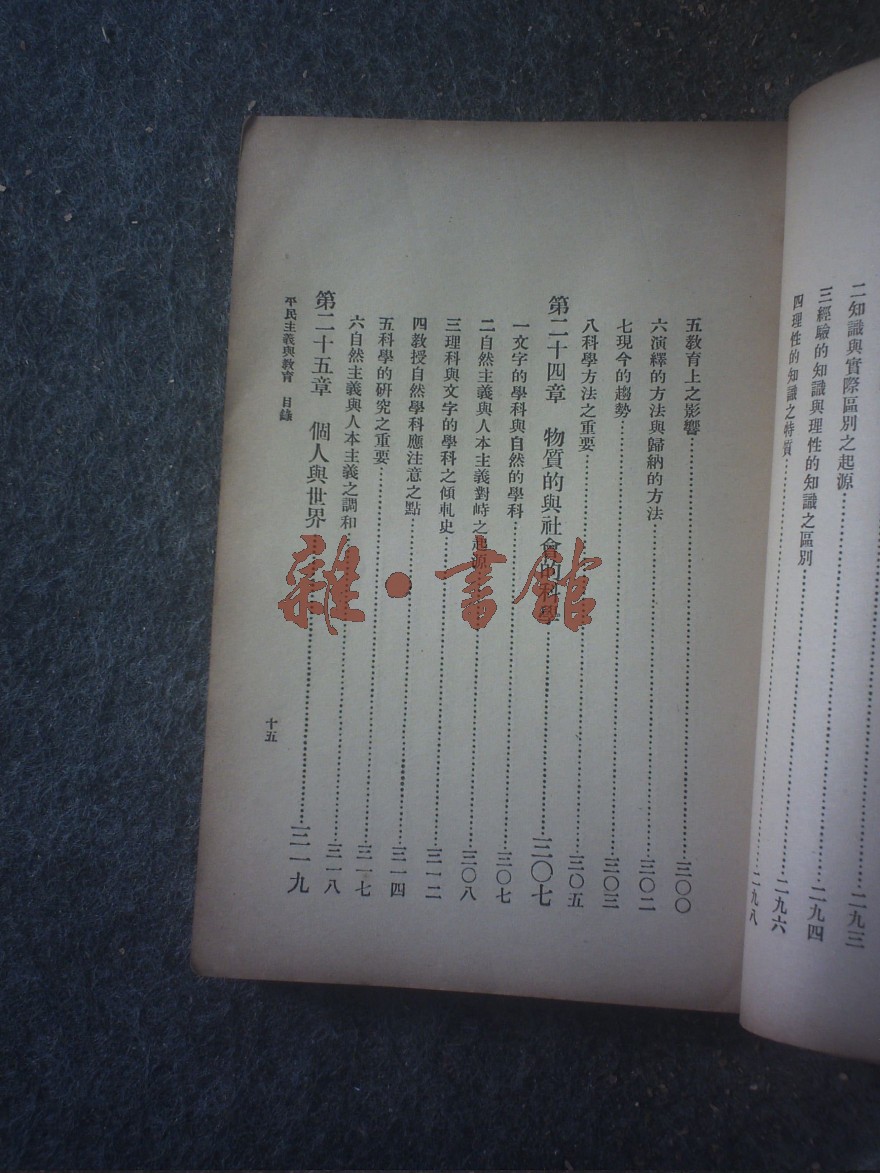 二知識與實際區別之起源……二九三
三經驗的知識與理性的知識之區別……二九四
四理性的知識之特質……二九六
……二九八
五教育上之影響……三〇〇
六演繹的方法與歸納的方法……三〇二
七現今的趨勢……三〇三
八科學方法之重要……三〇五
第二十四章 物質的與社會的科學……三〇七
一文字的學科與自然的學科……三〇七
二自然主義與人本主義對峙之起源……三〇八
三理科與文字的學科之傾軋史……三一二
四教授自然學科應注意之點……三一四
五科學的研究之重要……三一七
六自然主義與人本主義之調和……三一八
第二十五章 個人與世界……三一九
平民主義與教育 目錄
十五
雜·書館